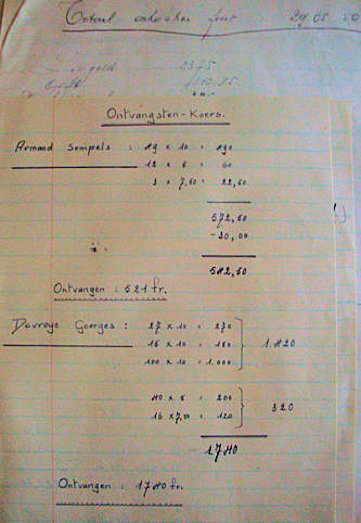 Totaal onkosten feest 29.05.50
2375
Ontvangsten-Koers.
Armand Sempels : 49 x 10 = 490
12 x 5 = 60
3 x 7,50 = 22,50
572,50
-30,00
542,50
Ontvangen : 521 fr.
Devroye Goerges : 27 x 10 = 270
15 x 10 = 150
100 x 10 = 1.000
1.420
40 x 5 = 200
16 x 7,50 = 120
320
1740
Ontvangen : 1740 fr.